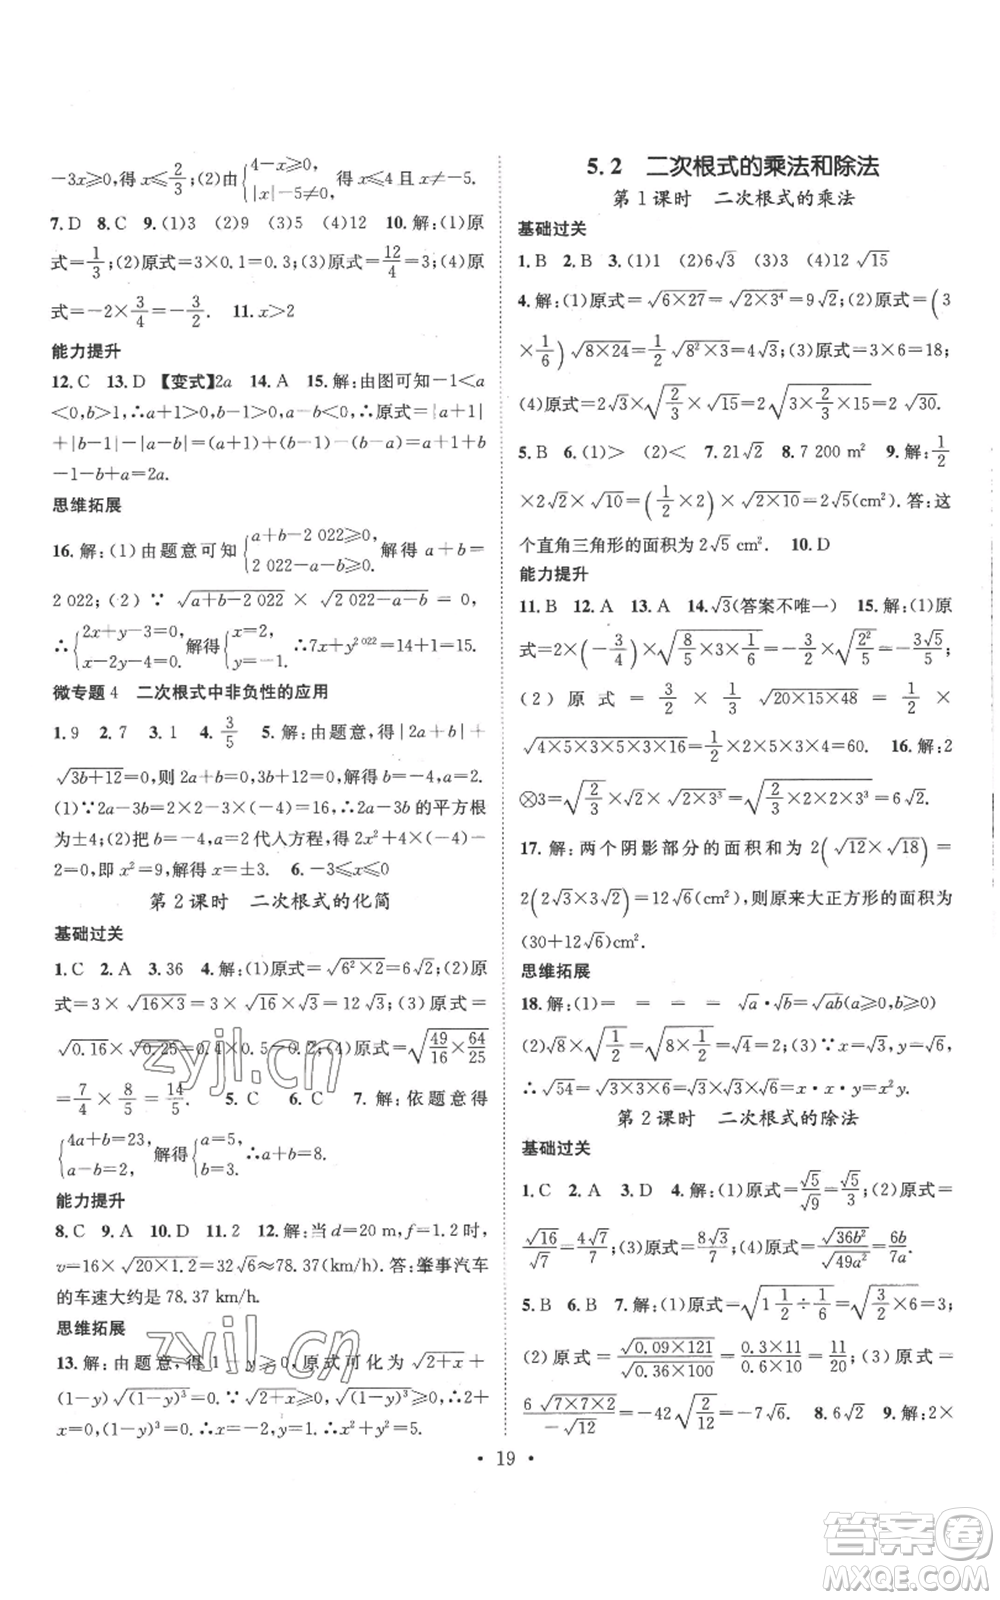 -3x≥0,得 x≤2/3;(2)由{4-x≥0, |x|-5≠0,得 x≤4 且 x≠-5.
7.D 8.C 9.(1)3 (2)6 (3)5 (4)4 10.解:(1)原
式=1/3;(2)原式=3×0.1=0.3;(3)原式=12/4=3;(4)原
式=-2×3/4=-3/2. 11.x>2
能力提升
12.C 13.D 【变式】2a 14.A 15.解:由图可知-1<a
<0,b>1,∴a+1>0,b-1>0,a-b<0,∴原式=|a+1|
+|b-1|-|a-b|=(a+1)+(b-1)-(b-a)=a+1+b
-1-b+a=2a.
思维拓展
16.解:(1)由题意可知{a+b-2 022≥0, 2 022-a-b≥0,解得 a+b=
2 022;(2)∵ √(a+b-2 022) × √(2 022-a-b) = 0,
∴{2x+y-3=0, x-2y-4=0.解得{x=2, y=-1.∴7x+y^2 022=14+1=15.
微专题 4 二次根式中非负性的应用
1.9 2.7 3.1 4.3/5 5.解:由题意,得|2a+b|+
√(3b+12)=0,则 2a+b=0,3b+12=0,解得 b=-4,a=2.
(1)∵2a-3b=2×2-3×(-4)=16,∴2a-3b 的平方根
为±4;(2)把 b=-4,a=2 代入方程,得 2x²+4×(-4)=
2,即 x²=9,解得 x=±3. 6.-3≤x≤2
第 2 课时 二次根式的化简
基础过关
1.C 2.A 3.36 4.解:(1)原式=√(6²×2)=6√2;(2)原
式=3×√(16×3)=3×√16×√3=12√3;(3)原式=
√0.16×√0.25=0.4×0.5=0.2;(4)原式=√(49/16×64/25)
=7/4×8/5=14/5. 5.C 6.C 7.解:依题意得
{4a+b=23, a-b=2,解得{a=5, b=3.∴a+b=8.
能力提升
8.C 9.A 10.D 11.2 12.解:当 d=20 m,f=1.2 时,
v=16×√(20×1.2)=32√6≈78.37(km/h).答:肇事汽车
的车速大约是 78.37 km/h.
思维拓展
13.解:由题意,得 1-y≥0,原式可化为√(2+x)+
(1-y)√(1-y)³=0.∵√(2+x)≥0,√(1-y)³≥0.∴2+
x=0,(1-y)³=0.∴x=-2,y=1.∴x²+y²=4+1=5.
5.2 二次根式的乘法和除法
第 1 课时 二次根式的乘法
基础过关
1.B 2.B 3.(1)1 (2)6√3 (3)3 (4)12√15
4.解:(1)原式=√(6×27)=√(2×3⁴)=9√2;(2)原式=(3
×1/6)√(8×24)=1/2√(8²×3)=4√3;(3)原式=3×6=18;
(4)原式=2√3×√(2/3)×√15=2√(3×2/3×15)=2√30.
5.B 6.(1)> (2)< 7.21√2 8.7 200 m² 9.解:1/2
×2√2×√10=(1/2×2)×√(2×10)=2√5(cm²).答:这
个直角三角形的面积为 2√5 cm². 10.D
能力提升
11.B 12.A 13.A 14.√3(答案不唯一) 15.解:(1)原
式=2×(-3/4)×√(8/5×1/3×1/6)=-3/2×√(2²/5)=-3√5/5;
(2)原式=1/2×√(20×15×48)=1/2×
√(4×5×3×5×3×16)=1/2×2×5×3×4=60. 16.解:2
⊗3=√(2/3)×√2×√(2×3³)=√(2/3×2×2×3³)=6√2.
17.解:两个阴影部分的面积和为 2(√12×√18)=
2(2√3×3√2)=12√6(cm²),则原来大正方形的面积为
(30+12√6)cm².
思维拓展
18.解:(1)= = = √a·√b=√ab(a≥0,b≥0)
(2)√8×√(1/2)=√(8×1/2)=√4=2;(3)∵x=√3,y=√6,
∴√54=√(3×3×6)=√3×√3×√6=x·x·y=x²y.
第 2 课时 二次根式的除法
基础过关
1.C 2.A 3.D 4.解:(1)原式=√5/√9=√5/3;(2)原式=
√16/√7=4√7/7;(3)原式=8√3/7;(4)原式=√36b²/√49a²=6b/7a.
5.B 6.B 7.解:(1)原式=√(1 1/2÷1/6)=√(3/2×6)=3;
(2)原式=√(0.09×121)/√(0.36×100)=0.3×11/0.6×10=11/20;(3)原式=
6√(7×7×2)/-√12=-42√(2/12)=-7√6. 8.6√2 9.解:2×
· 19 ·
zyjl.cn
zyjl.cn
答案圈
MXQE.COM